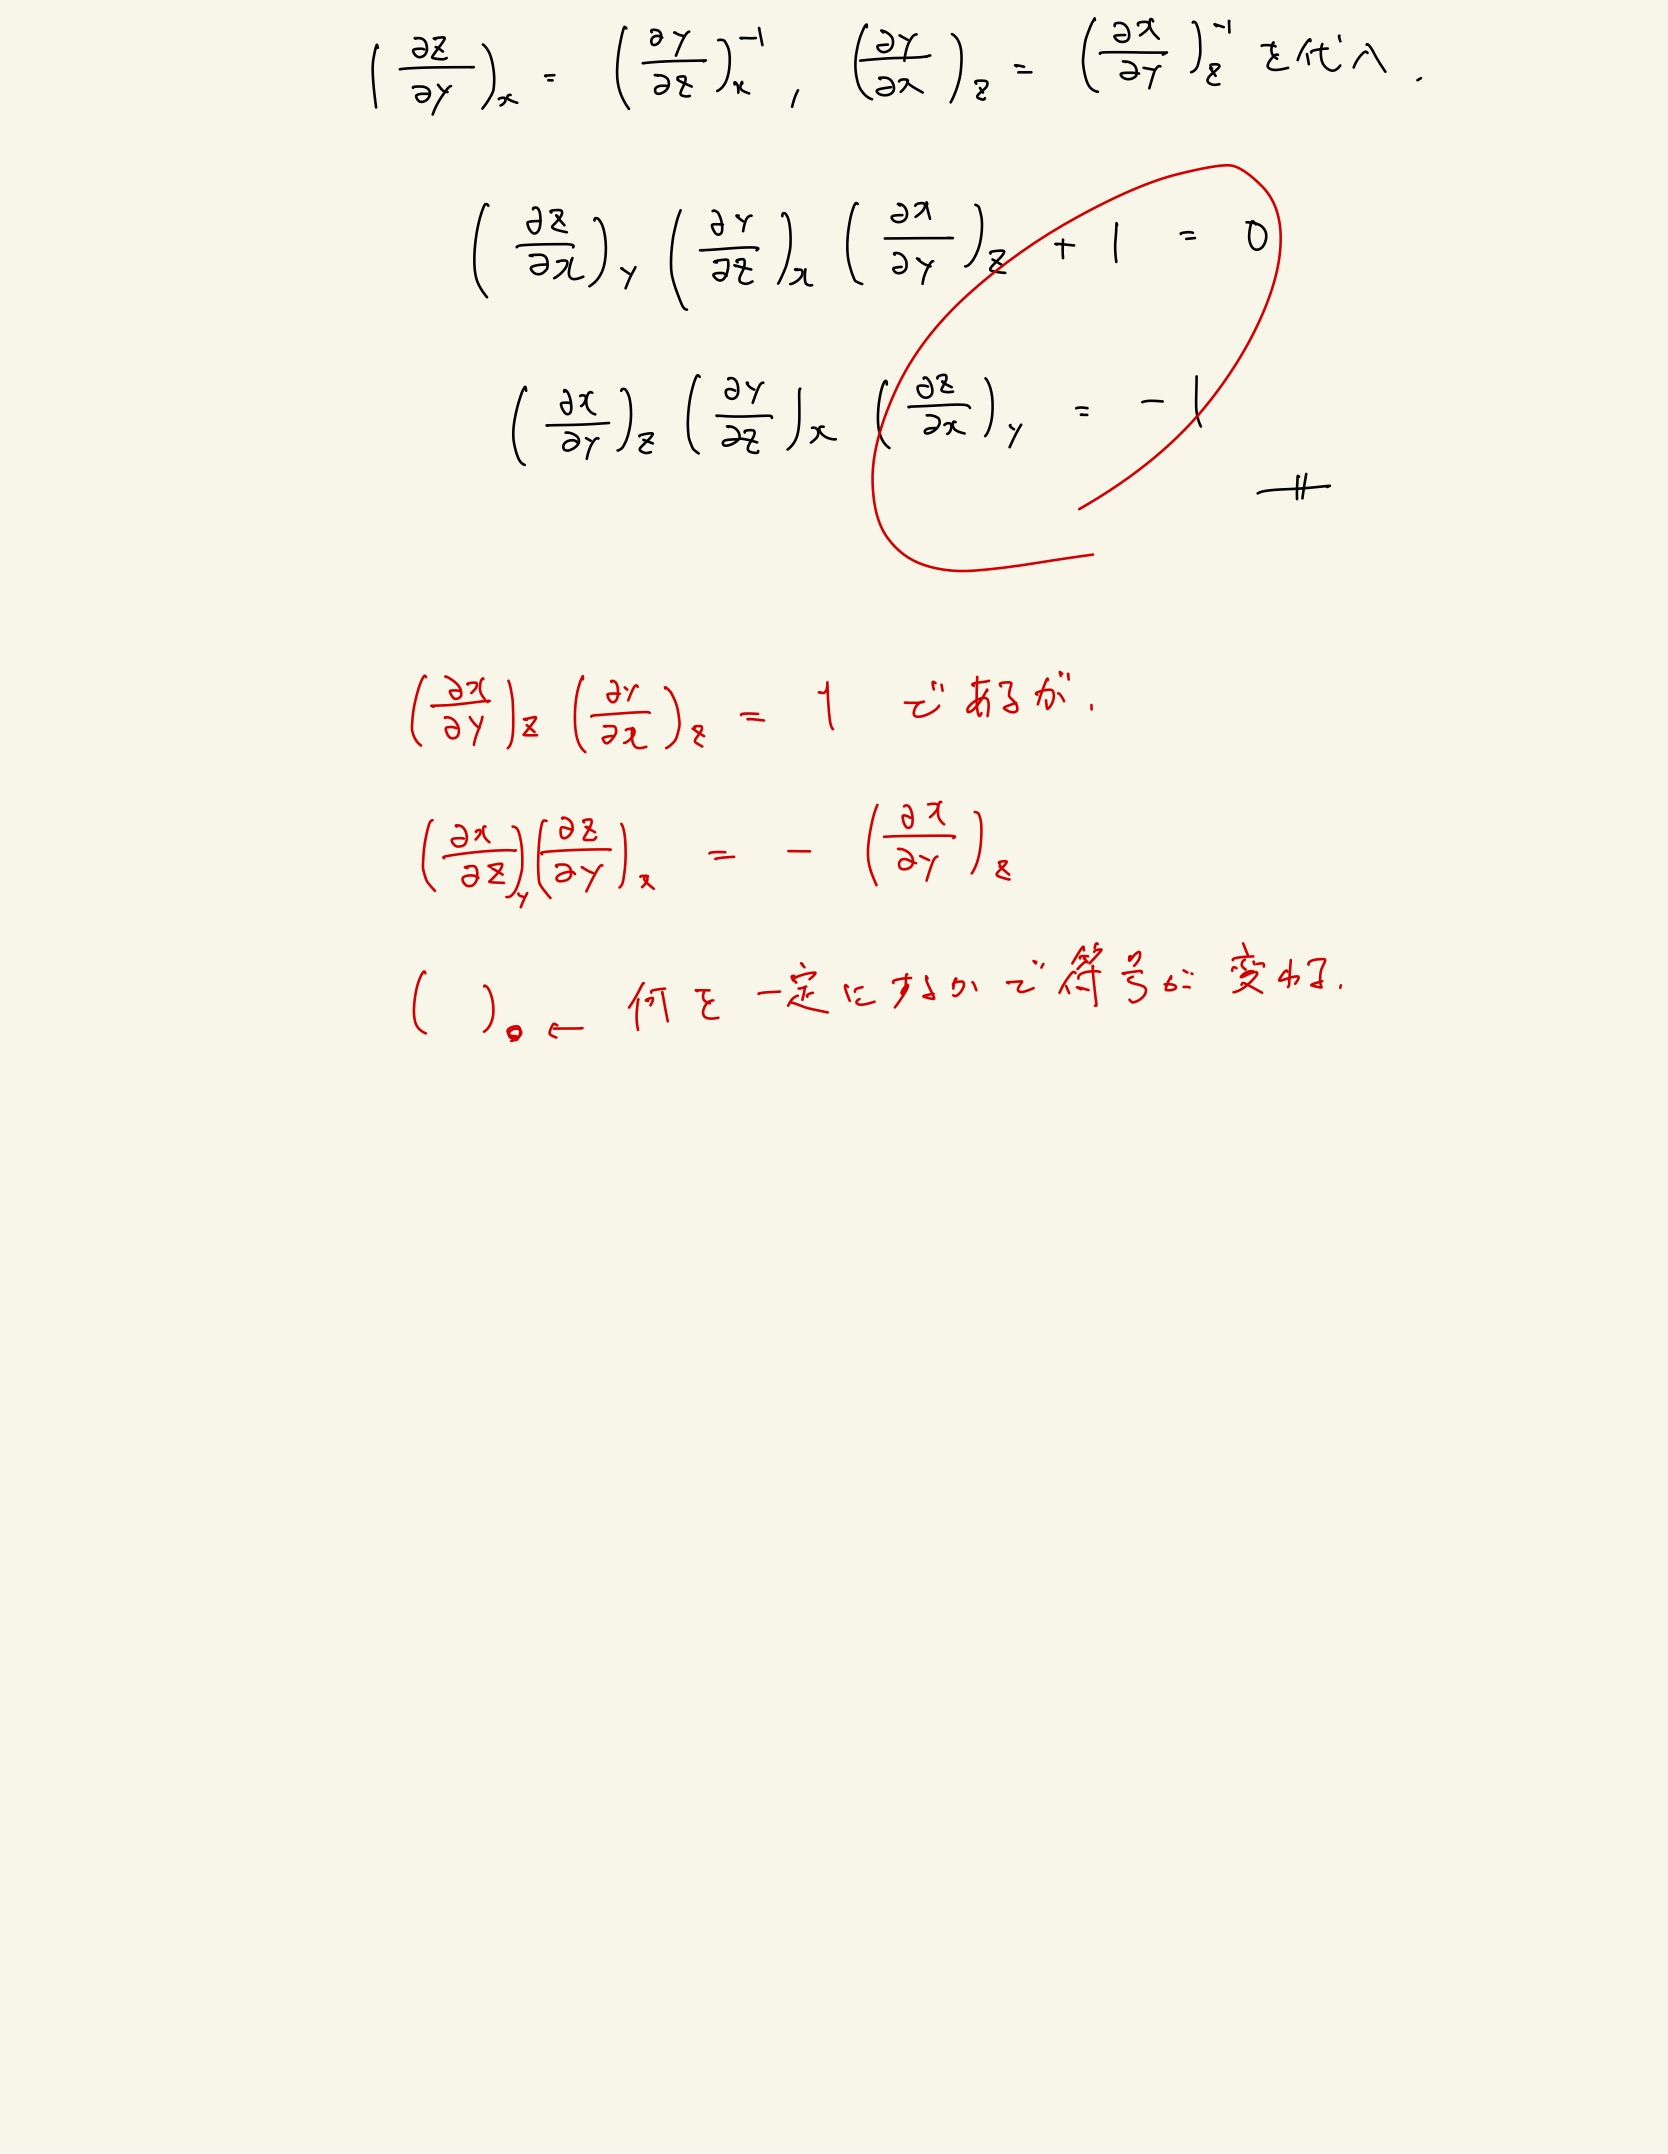 (∂z/∂y)_x = (∂y/∂z)_x^-1 , (∂y/∂x)_z = (∂x/∂y)_z^-1 を代入.
(∂z/∂x)_y (∂y/∂z)_x (∂x/∂y)_z + 1 = 0
(∂x/∂y)_z (∂y/∂z)_x (∂z/∂x)_y = -1
(∂x/∂y)_z (∂y/∂x)_z = 1 であるが.
(∂x/∂z)_y (∂z/∂y)_x = - (∂x/∂y)_z
( )_• ← 何を一定にするかで符号が変わる.